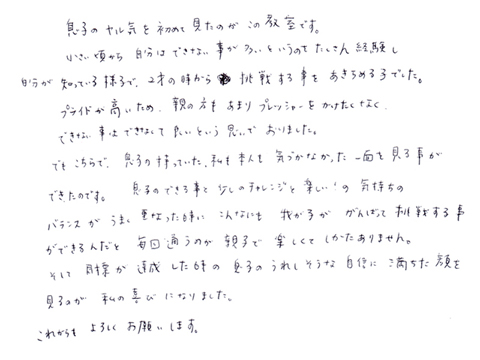 息子のヤル気を初めて見たのがこの教室です。
小さい頃から自分はできない事が多いというのをたくさん経験し
自分が知っている様子で、2才の時から挑戦する事をあきらめる子でした。
プライドが高いため、親の方もあまりプレッシャーをかけたくなく、
できない事はできなくて良いという思いでおりました。
でもこちらで、息子の持っていた、私も本人も気づかなかった一面を見る事が
できたのです。 息子のできる事と少しのチャレンジと楽しい!の気持ちの
バランスがうまく重なった時にこんなにも我が子ががんばって挑戦する事
ができるんだと毎回通うのが親子で楽しくてしかたありません。
そして目標が達成した時の息子のうれしそうな自信に満ちた顔を
見るのが私の喜びになりました。
これからもよろしくお願いします。